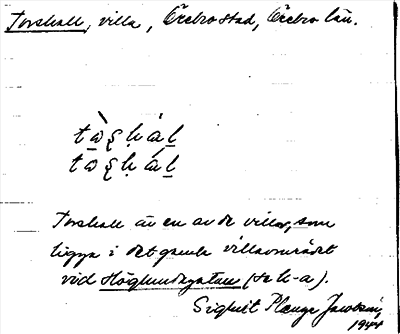 Torshall, villa, Örebro stad, Örebro län.
Torshall är en av de villor, som
ligga i det gamla villaområdet
vid Höglundagatan (se h-a).
Sigurit Plange Jacobson,
1944